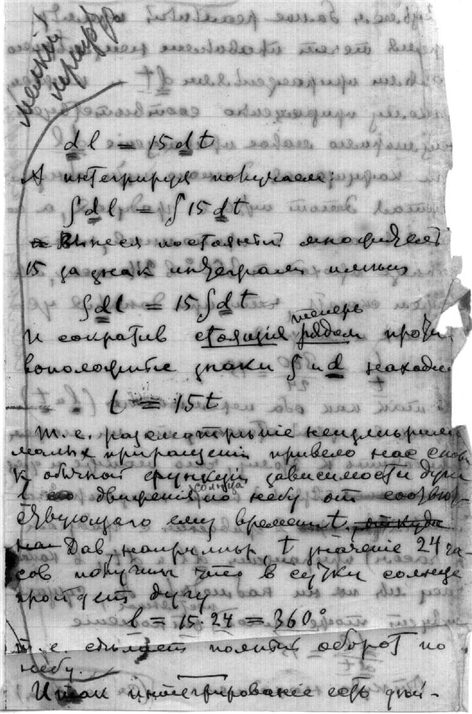 мелкий
шрифт
dl = 15dt
А интегрируя получаем:
∫dl = ∫15dt
Вынеся постоянный множитель
15 за знак интеграла имеем
∫dl = 15∫dt
теперь
и сократив стоящие рядом проти
воположные знаки ∫ и d находим
l = 15t
т.е. рассмотрѣние неизмѣримо
малых приращений привело нас снова
к обычной функции зависимости дуги
l движения солнца по небу от соотвѣт
ствующего ему времени t, откуда
Дав, напримѣр t значение 24 ча
сов получим что в сутки солнце
пройдет дугу
l = 15·24 = 360°
т.е. сделает полный оборот по
небу.
Итак интегрирование есть дѣй-